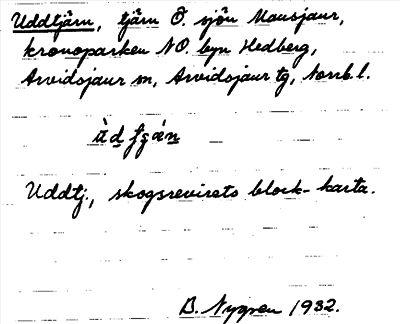 Uddtjärn, tjärn Ö. sjön Mausjaur,
kronoparken NO. byn Hedberg,
Arvidsjaur sn, Arvidsjaur tg, Norrb. l.
Uddtj., skogsrevirets block-karta.
B. Nygren 1932.